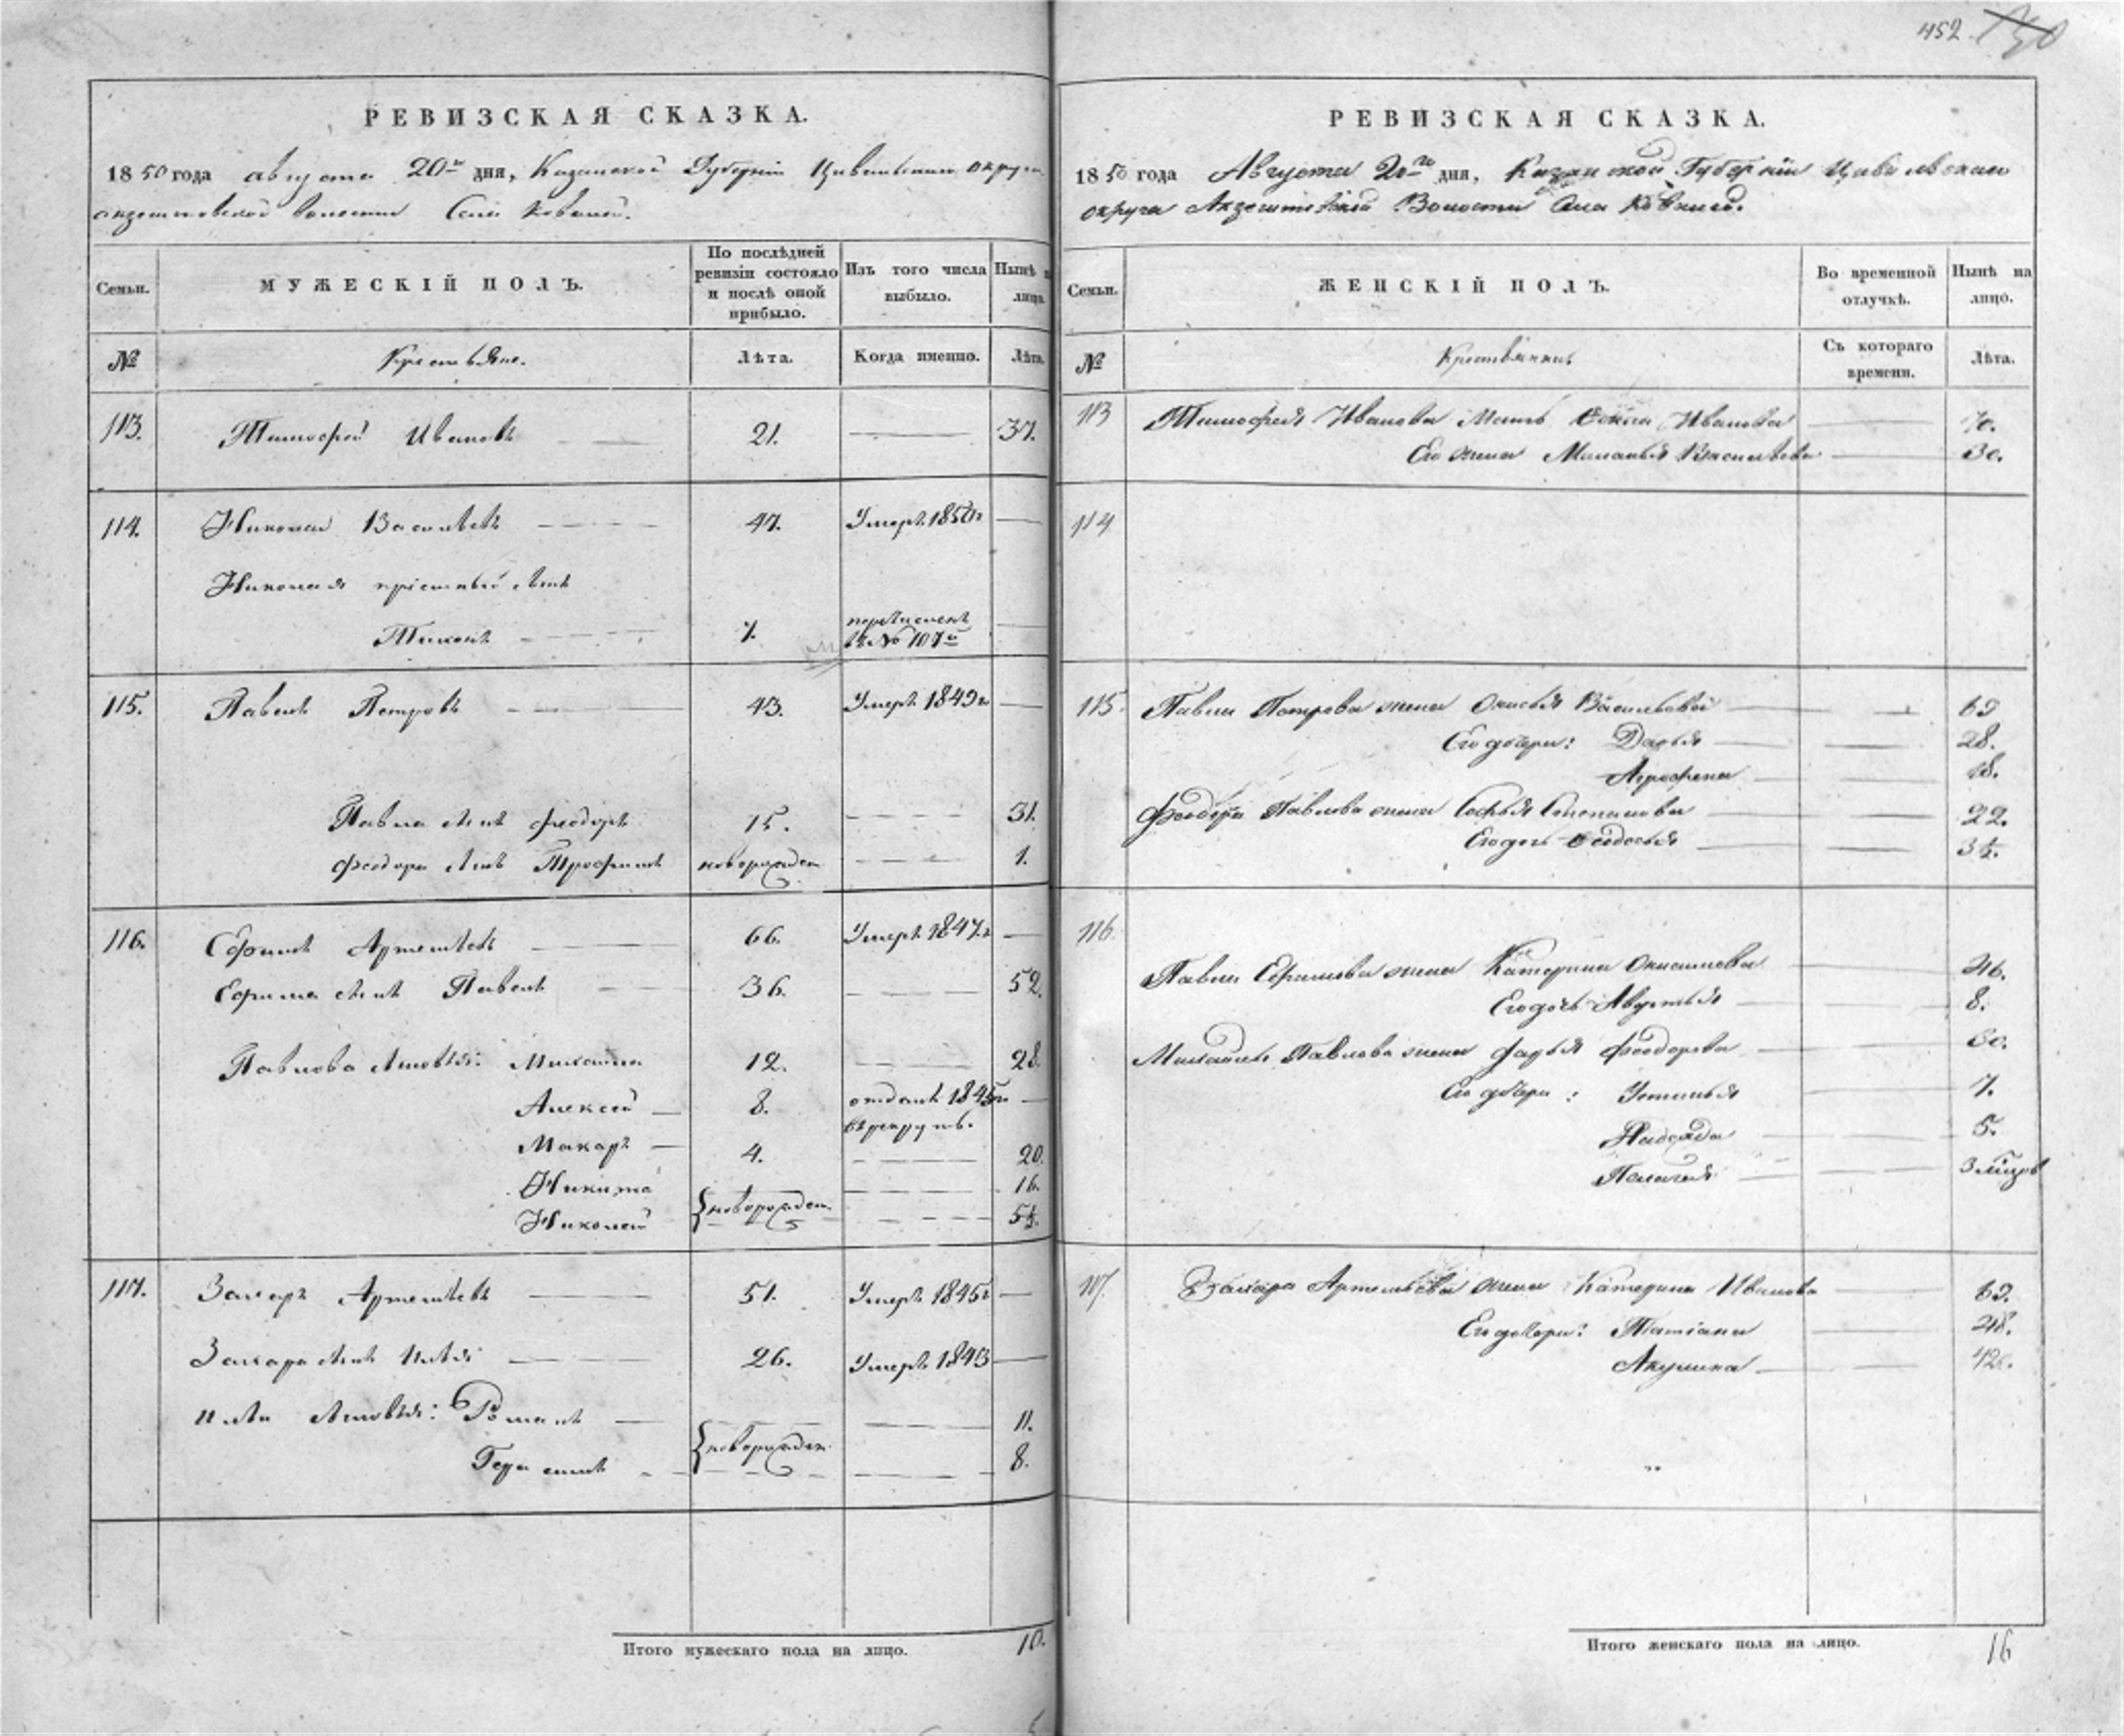 452. 150
РЕВИЗСКАЯ СКАЗКА.
1850 года августа 20го дня, Казанской Губерніи Цивильскаго округа
волости Села Ковалей.
Семьи.
МУЖЕСКІЙ ПОЛЪ.
По послѣдней ревизіи состояло и послѣ оной прибыло.
Изъ того числа выбыло.
Нынѣ на лицо.
№
Крестьяне.
Лѣта.
Когда именно.
Лѣта.
113. Тимофей Ивановъ 21. 37.
114. Николай Васильевъ 47. Умеръ 1850г
Николая пріемный сынъ
Тихонъ 7. перечисленъ въ № 107й
115. Павелъ Петровъ 43. Умеръ 1849г
Павла сынъ Феодоръ 15. 31.
Феодора сынъ Трофимъ новорожден 1.
116. Ефимъ Артемьевъ 66. Умеръ 1847г
Ефима сынъ Павелъ 36. 52.
Павлова сыновья: Михаила 12. 28.
Алексей 8. отданъ 1845г въ рекруты.
Макаръ 4. 20.
Никита новорожден 16.
Николай 5½.
117. Захаръ Артемьевъ 51. Умеръ 1845г
Захара сынъ Илья 26. Умеръ 1843
Ильи сыновья: Романъ новорожден 11.
Герасимъ 8.
Итого мужескаго пола на лицо. 10.
РЕВИЗСКАЯ СКАЗКА.
1850 года Августа 20го дня, Казанской Губерніи Цивильскаго
округа Волости Села Ковалей.
Семьи.
ЖЕНСКІЙ ПОЛЪ.
Во временной отлучкѣ.
Нынѣ на лицо.
№
Крестьянки
Съ котораго времени.
Лѣта.
113 Тимофея Иванова Мать Иванова 70.
Его жена Маланья Васильева 30.
114
115. Павла Петрова жена Васильева 69
Его дочери: Дарья 28.
Агрофена 18.
Феодора Павлова жена Софья Степанова 22.
Его дочь Феодосья 3½.
116. Павла Ефимова жена Катерина Анисимова 46.
Его дочь Авдотья 8.
Михайлы Павлова жена Дарья Феодорова 30.
Его дочери: Устинья 7.
Надежда 5.
Пелагея 3 мѣсяцов
117. Захара Артемьева жена Катерина Иванова 69.
Его дочери: Татіана 48.
Акулина 42.
Итого женскаго пола на лицо. 16